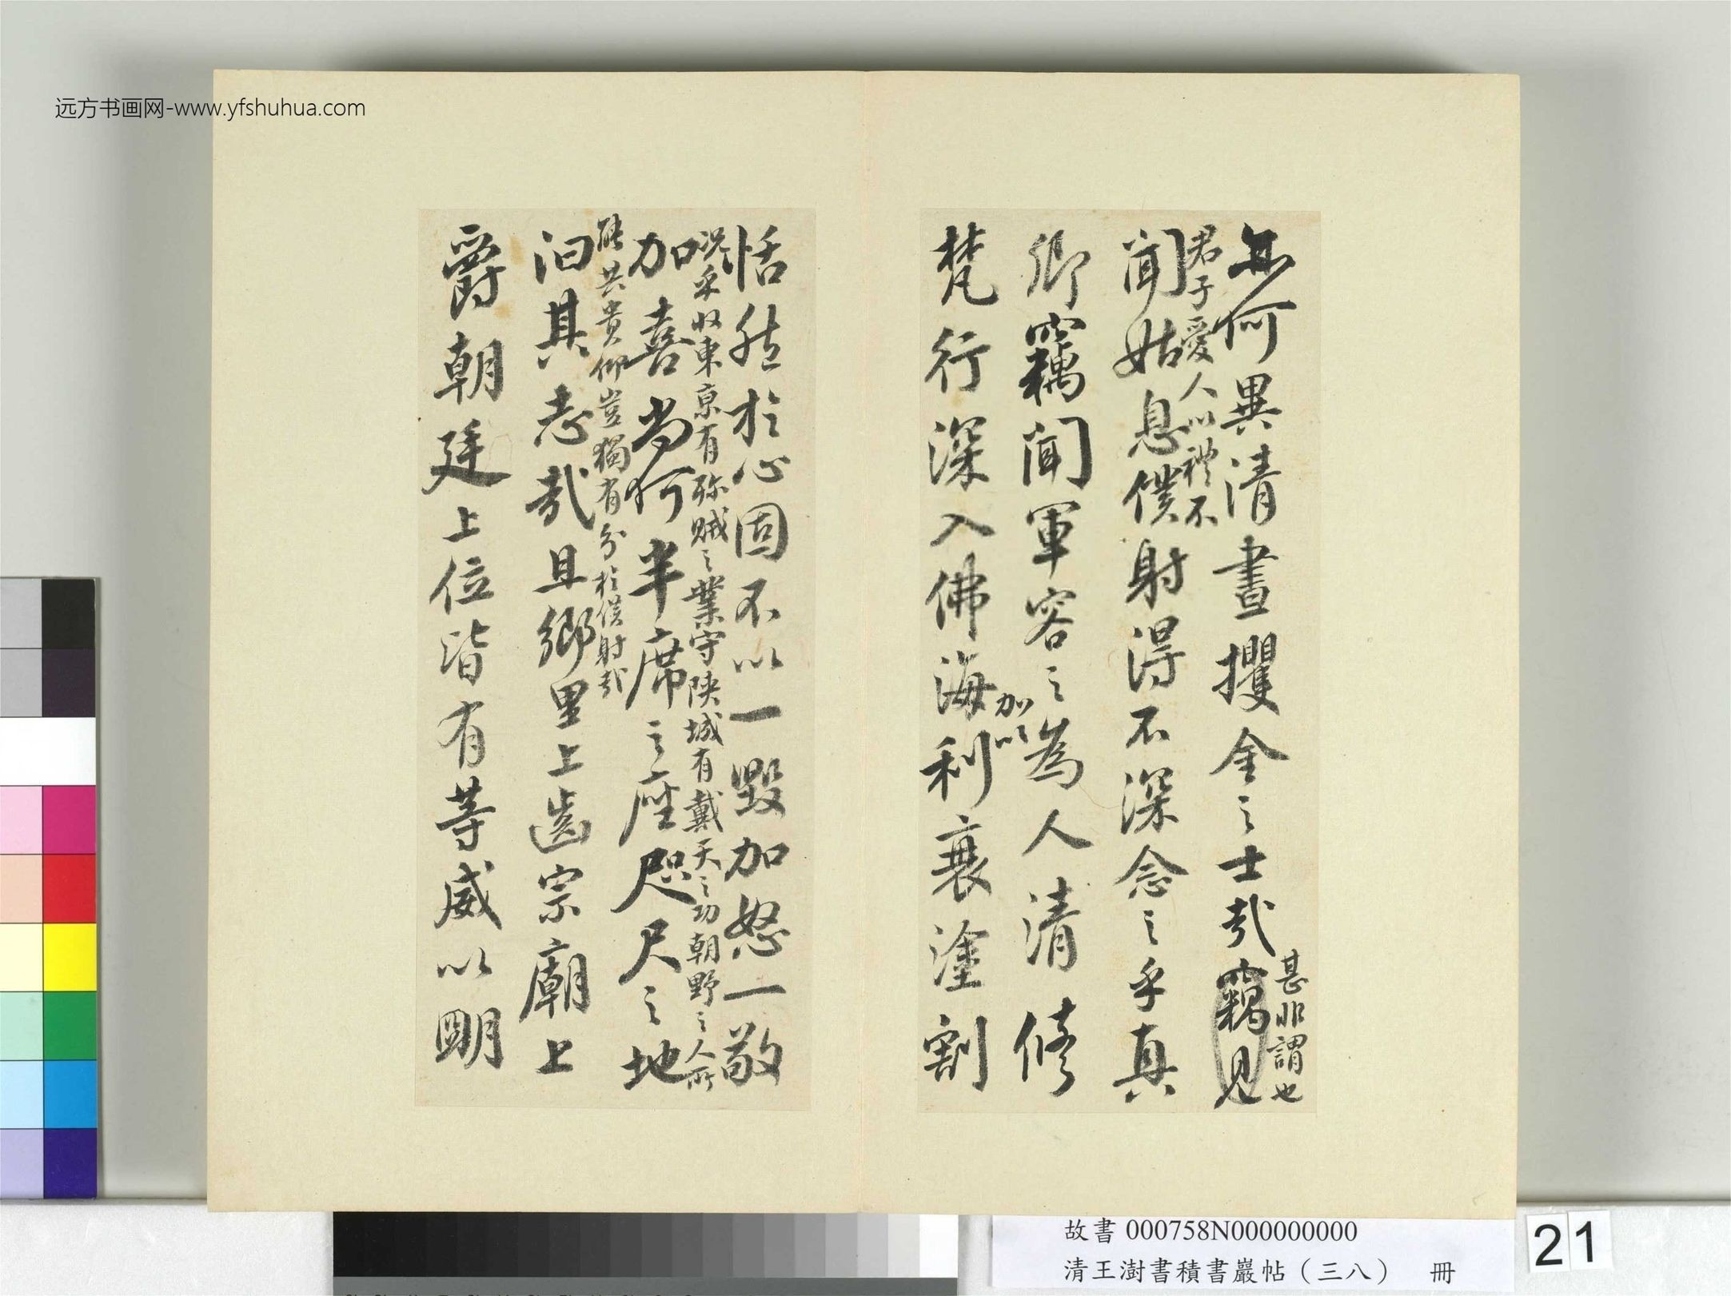 远方书画网-www.yfshuhua.com
無何異清晝攫金之士哉竊見
甚非謂也
君子愛人以禮不
聞姑息僕射得不深念之乎真
卿竊聞軍容之為人清修
梵行深入佛海
加以
利衰塗割
恬然於心固不以一毀加怒一敬
況乎收東京有殄賊之業守陝城有戴天之功朝野之人所
加喜尚何半席之座咫尺之地
共貴仰豈獨有分於僕射哉
汩其志哉且鄉里上齒宗廟上
爵朝廷上位皆有等威以明
故書 000758N000000000
清王澍書積書巖帖（三八） 冊
21